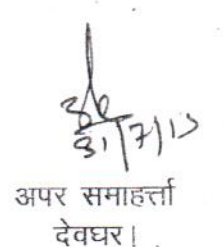 31/7/15
अपर समाहर्त्ता
देवघर।